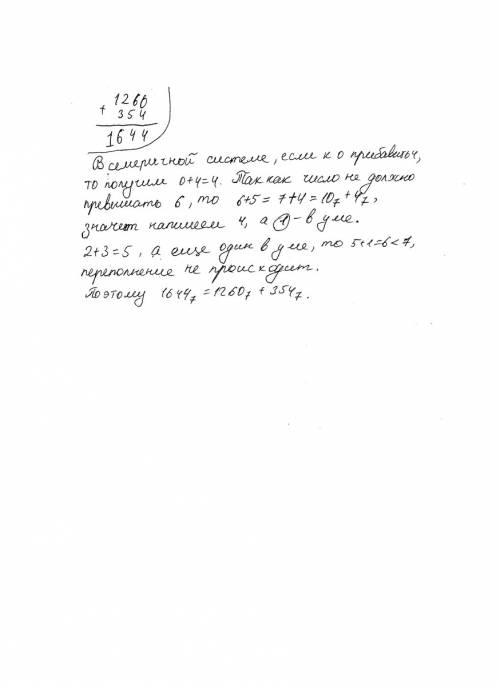 1260
+ 354
1644
В семеричной системе, если к 0 прибавить 4,
то получим 0+4=4. Так как число не должно
превышать 6, то 6+5=7+4=10₇+4₇,
значет напишем 4, а 1 - в уме.
2+3=5, а еще один в уме, то 5+1=6<7,
переполнение не происходит.
Поэтому 1644₇=1260₇+354₇.